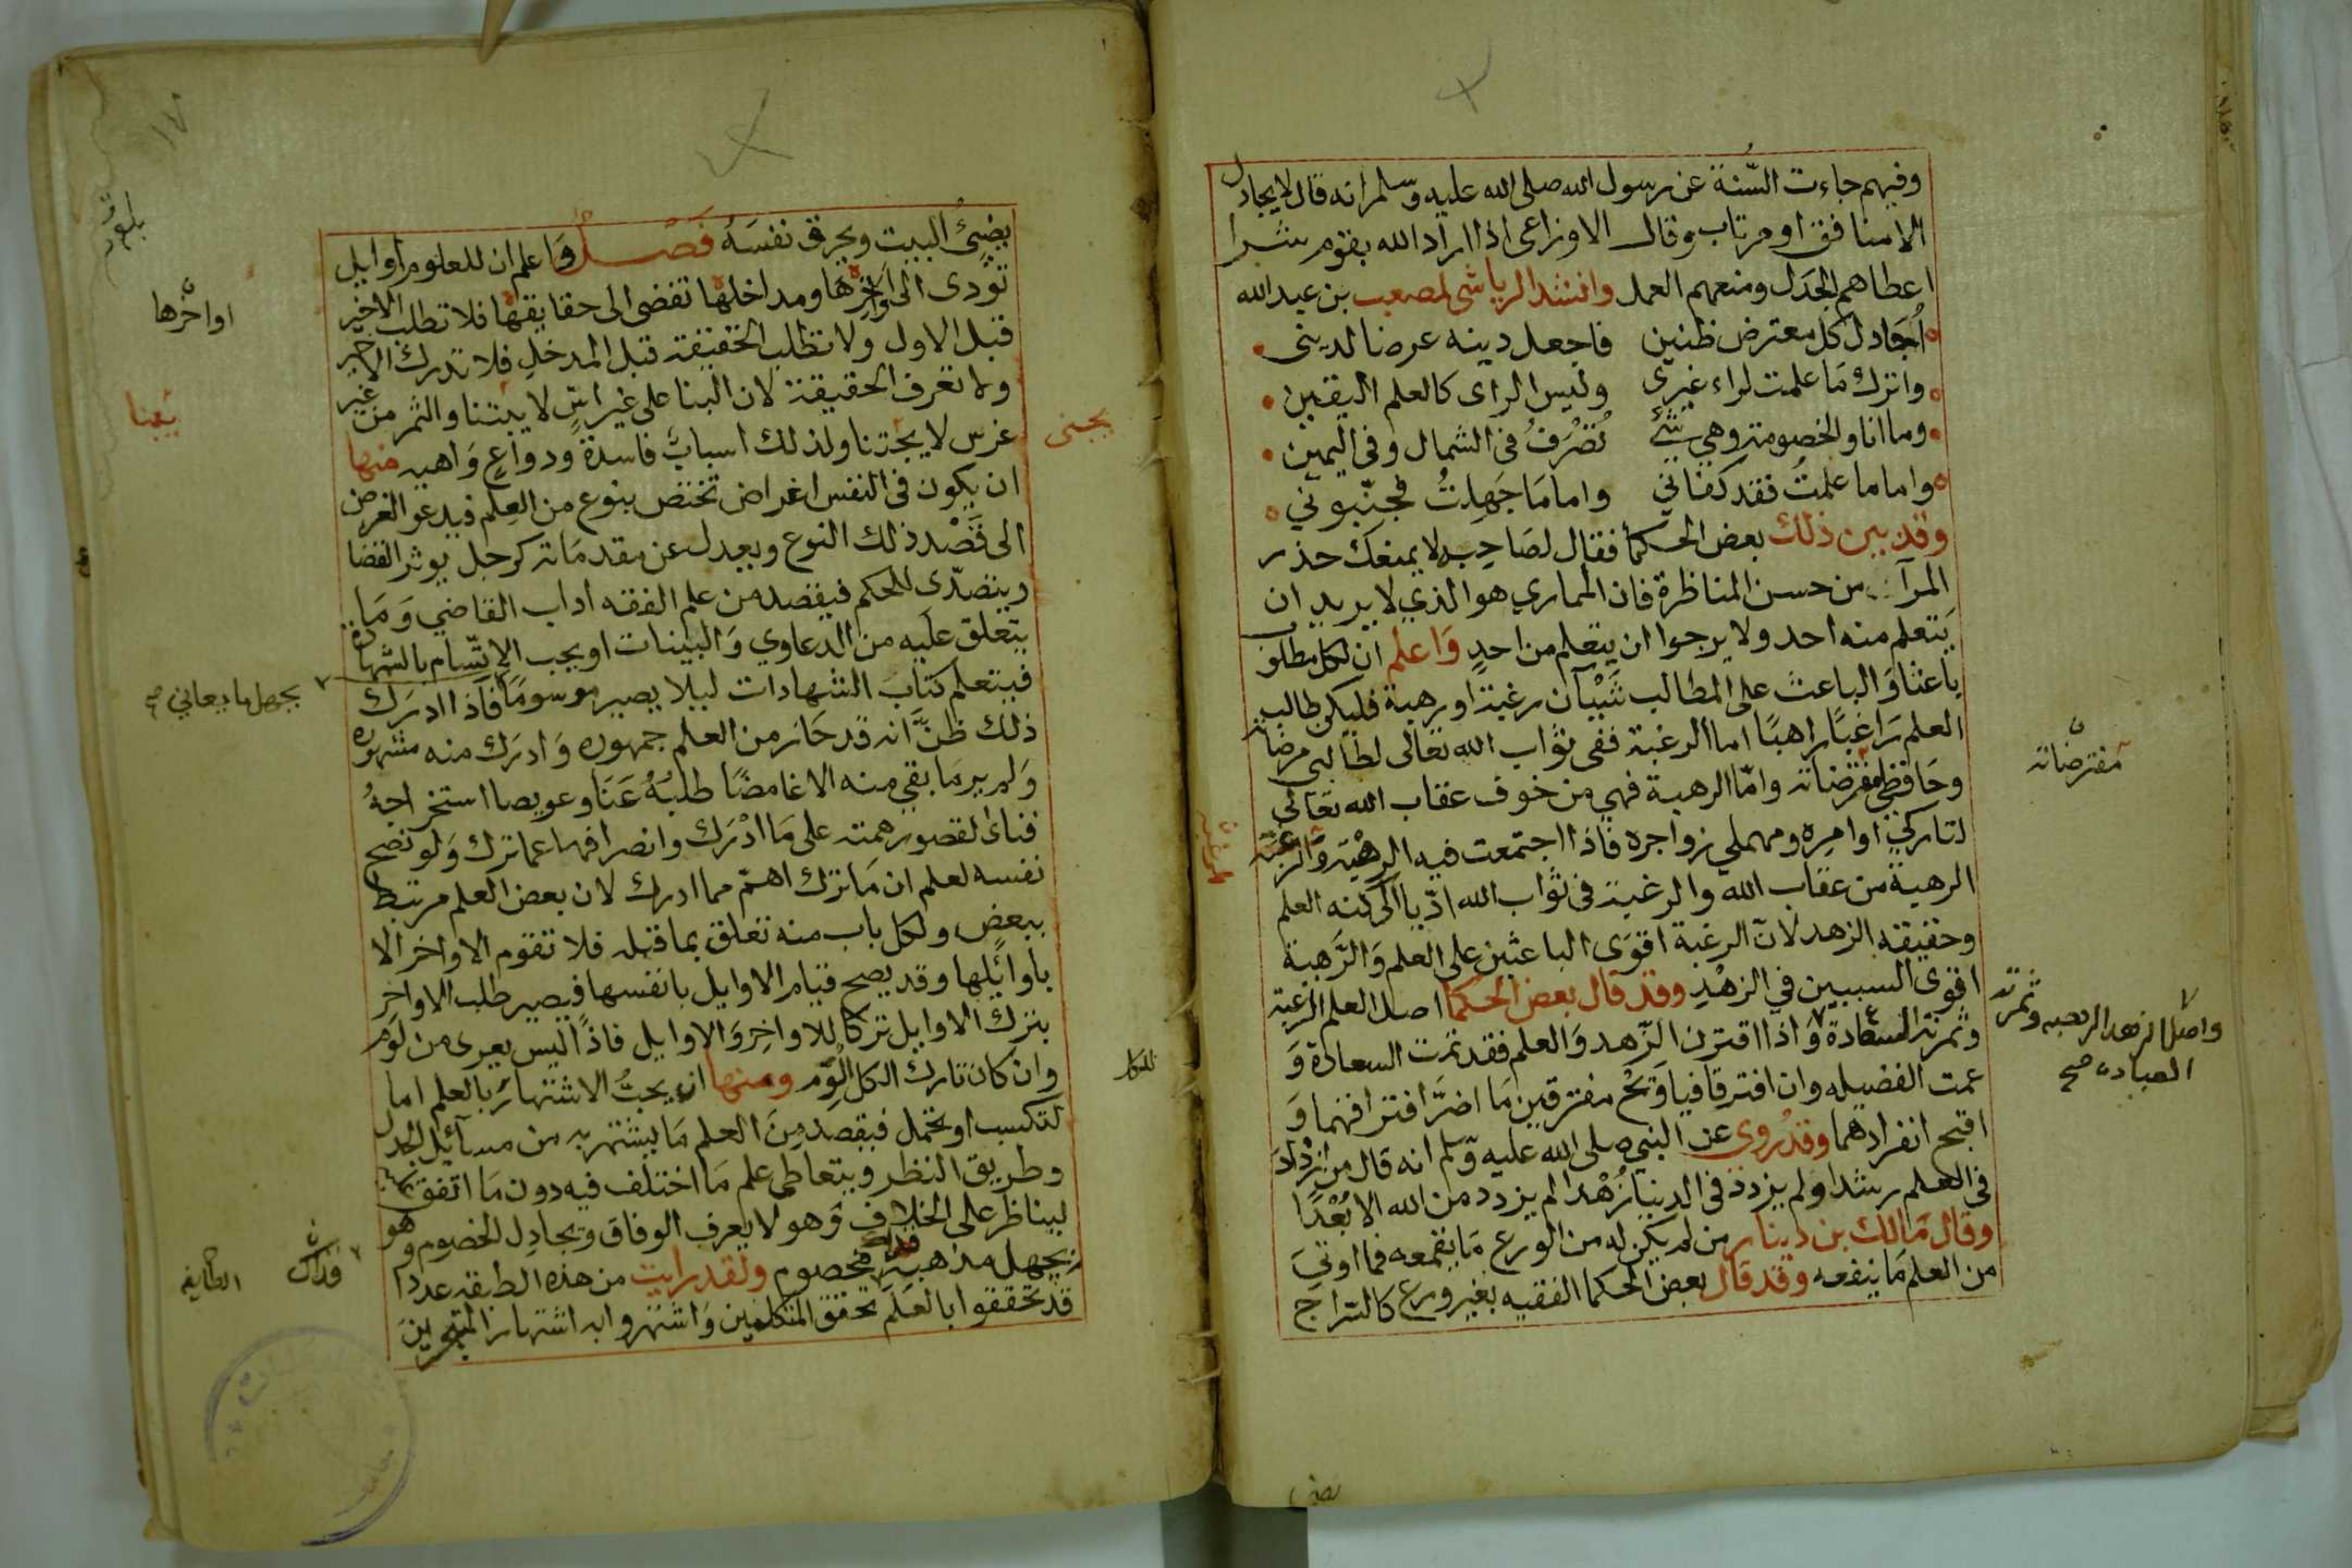 وفيهم جاءت السّنة عن رسول الله صلى الله عليه وسلم انه قال لا يجادل
الا منافق او مرتاب وقال الاوزاعى اذا اراد الله بقوم شرا
اعطاهم الجدل ومنعهم العمل وانشد الرياشى لمصعب بن عبد الله
أجادل كل معترض ظنين فاجعل دينه عرضا لدينى
واترك مَا علمت لراء غيرى وليس الراى كالعلم اليقين
وما انا والخصومة وهي شئ تُصْرَفُ فى الشمال وفى اليمين
واما ما علمتُ فقد كفاني واما مَا جَهِلتُ فجنّبوني
وقد بين ذلك بعض الحكما فقال لصَاحِبه لا يمنعك حذر
المرآء من حسن المناظرة فان المماري هو الذي لا يريد ان
يَتعلم منه احد ولا يرجوا ان يتعلم من احدٍ وَاعلم ان لكل مطلوب
باعثا وَالباعث على المطالب شَيْآن رغبة او رهبة فليكن طالب
العلم رَاغبًا راهبًا اما الرغبة ففى ثواب الله تعالى لطالبي مرضاته
وحَافظي مفترضاته وامّا الرهبة فهي من خوف عقاب الله تعَالى
لتاركي اوامِره ومهملي زواجره فاذا اجتمعت فيه الرهبة وَالرغبة
الرهبة من عقاب الله والرغبة فى ثواب الله ادّيا الى كنه العلم
وحقيقة الزهد لانّ الرغبة اقوَى الباعثين على العلم وَالرَّهبة
اقوى السببين في الزهْدِ وقد قال بعض الحكما اصل العلم الرغبة
وثمرته السعَادة وَاذا اقترن الزّهد وَالعلم فقد تمت السعادة وَ
عمت الفضيله وان افترقا فيا وَيْحَ مفترقين مَا اضرَّ افتراقهما وَ
اقبح انفرادهما وقد رُوي عن النبي صلى الله عليه وسلم انه قال من ازدَادَ
فى العلم رشدا ولم يزدد فى الدنيا زُهْدا لم يزدد من الله الا بُعْدًا
وقال مَالك بن دينار من لم يكن له من الورع مَا يقمعه فما اوتيَ
من العلم مَا ينفعه وقد قال بعض الحكما الفقيه بغير ورع كالسراج
مفترضاته
واصل الزهد الرهبه وثمرته
العباده صح
يضئُ البيت ويحرق نفسَهُ فصْل وَاعلم ان للعلوم اوايل
تؤدى الى اواخِرها ومداخلها تفضى الى حقايقها فلا تطلب الاخير
قبل الاول ولا تطلب الحقيقة قبل المدخل فلا تدرك الاخير
ولا تعرف الحقيقة لان البنا على غير اسٍّ لا يبتنا والثمر من غير
غرس لا يجتنا ولذلك اسبابٌ فاسدةٌ ودواعٍ وَاهيه منها
ان يكون فى النفس اغراض تختص بنوع من العِلم فيدعو الغرض
الى قَصْد ذلك النوع ويعدل عن مقدمَاته كرجل يوثر القضا
ويتصدّى للحكم فيقصد من علم الفقه اداب القاضي وَمَا
يتعلق علَيه من الدعاوي وَالبينات او يحب الاتّسام بالشهادة
فيتعلم كتابَ الشهادات ليلا يصير موسومًا فاذا ادرَك
ذلك ظنَّ انه قد حَاز من العلم جمهوره وَادرَك منه مشهوره
وَلم ير مَا بقي منه الا غامضًا طلبُهُ عَنَا وعويصا استخراجهُ
فنا لقصور همته على مَا ادْرَك وانصرافها عما ترك وَلو نصح
نفسه لعلم ان مَا ترك اهمّ مما ادرك لان بعض العلم مرتبط
ببعض ولكل باب منه تعلق بما قبله فلا تقوم الاواخر الا
باوائلها وقد يصح قيام الاوايل بانفسها فيصير طلب الاواخر
بترك الاوايل تركا للاواخِر وَالاوايل فاذًا ليس يعرى من لوم
وان كان تارك الكل الْوَم ومنها ان يحبَّ الاشتهار بالعلم اما
لتكسب او تجمل فيقصد مِنَ العلم مَا يشتهر به من مسآئل الجدل
وطريق النظر ويتعاطى علم مَا اختلف فيه دون مَا اتفق
ليناظر على الخلاف وَهو لا يعرف الوفاق ويجادِل الخصوم وهو
يجهل مذاهب ولقد رايت من هذه الطبقه عددا
قد تحققوا بالعلم تحقق المتكلمين وَاشتهروا به اشتهار المتبحرين
١٧
اواخرها
يبنا
يجتنى
يجهل ما يعاني صح